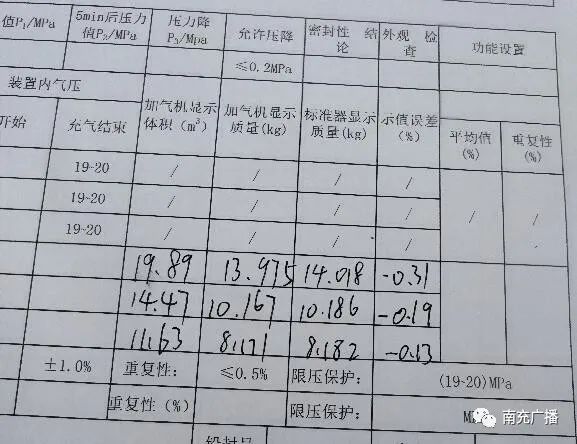 值P₁/MPa 5min后压力值P₂/MPa 压力降P₃/Mpa 允许压降 密封性结论 外观检查 功能设置
≤0.2MPa
装置内气压 加气机显示体积(m³) 加气机显示质量(kg) 标准器显示质量(kg) 示值误差(%)
开始 充气结束 平均值(%) 重复性(%)
19-20 / / / /
19-20 / / / / / /
19-20 / / / /
19.89 13.975 14.018 -0.31
14.47 10.167 10.186 -0.19
11.63 8.171 8.182 -0.13
±1.0% 重复性: ≤0.5% 限压保护: (19-20)MPa
重复性(%) 限压保护:
南充广播